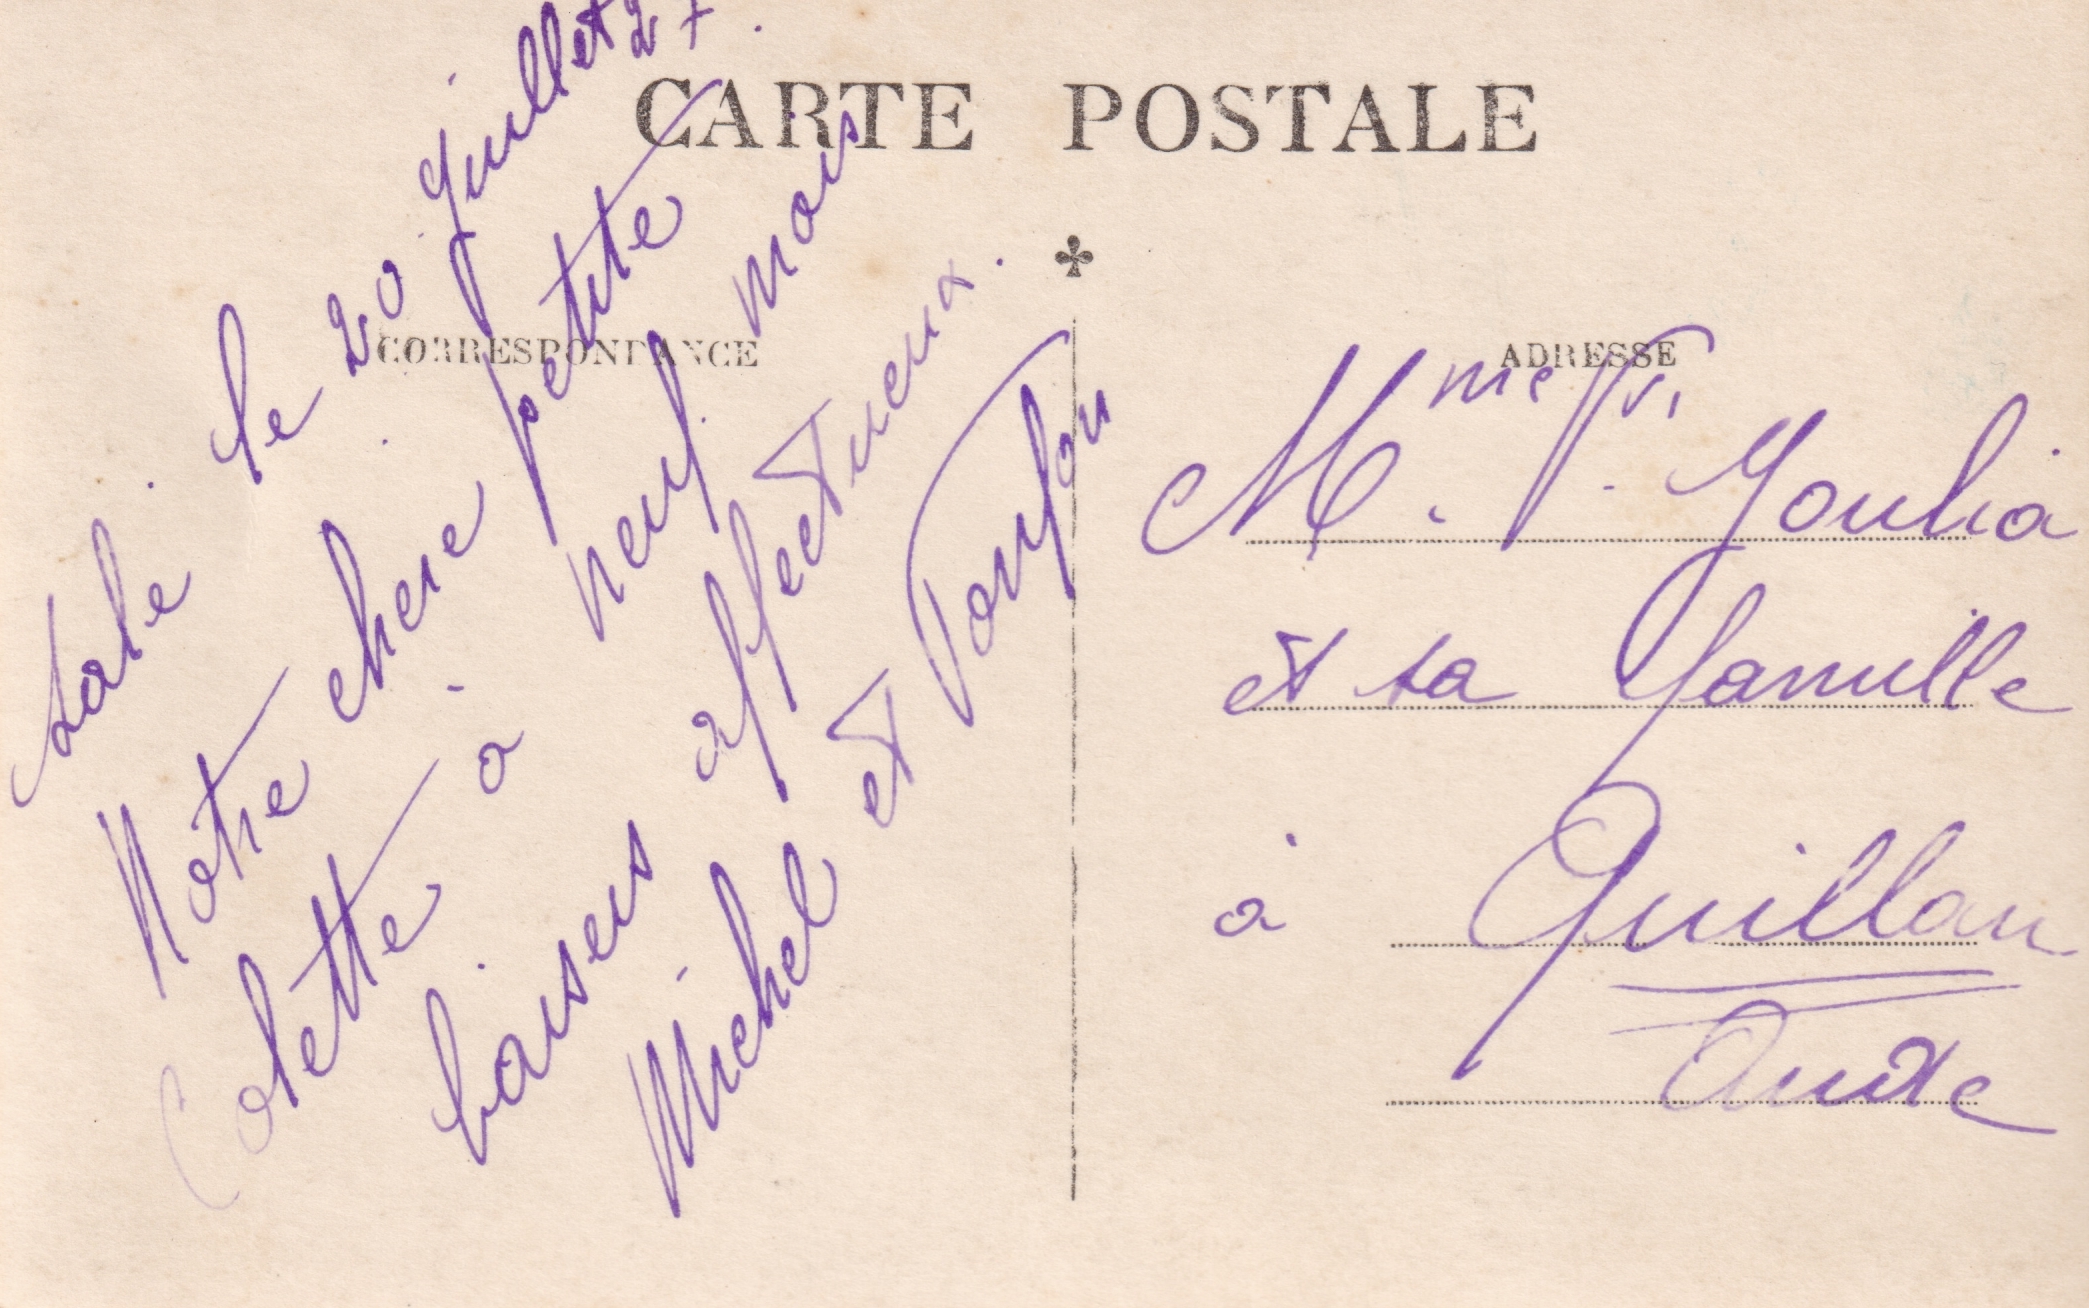 CARTE POSTALE
CORRESPONDANCE
le 20 Juillet 27.
Notre chere petite
Colette à neuf mois
baisers affectueux.
Michel et
ADRESSE
Mme Vve Joulia
et sa famille
à Quillan
Aude